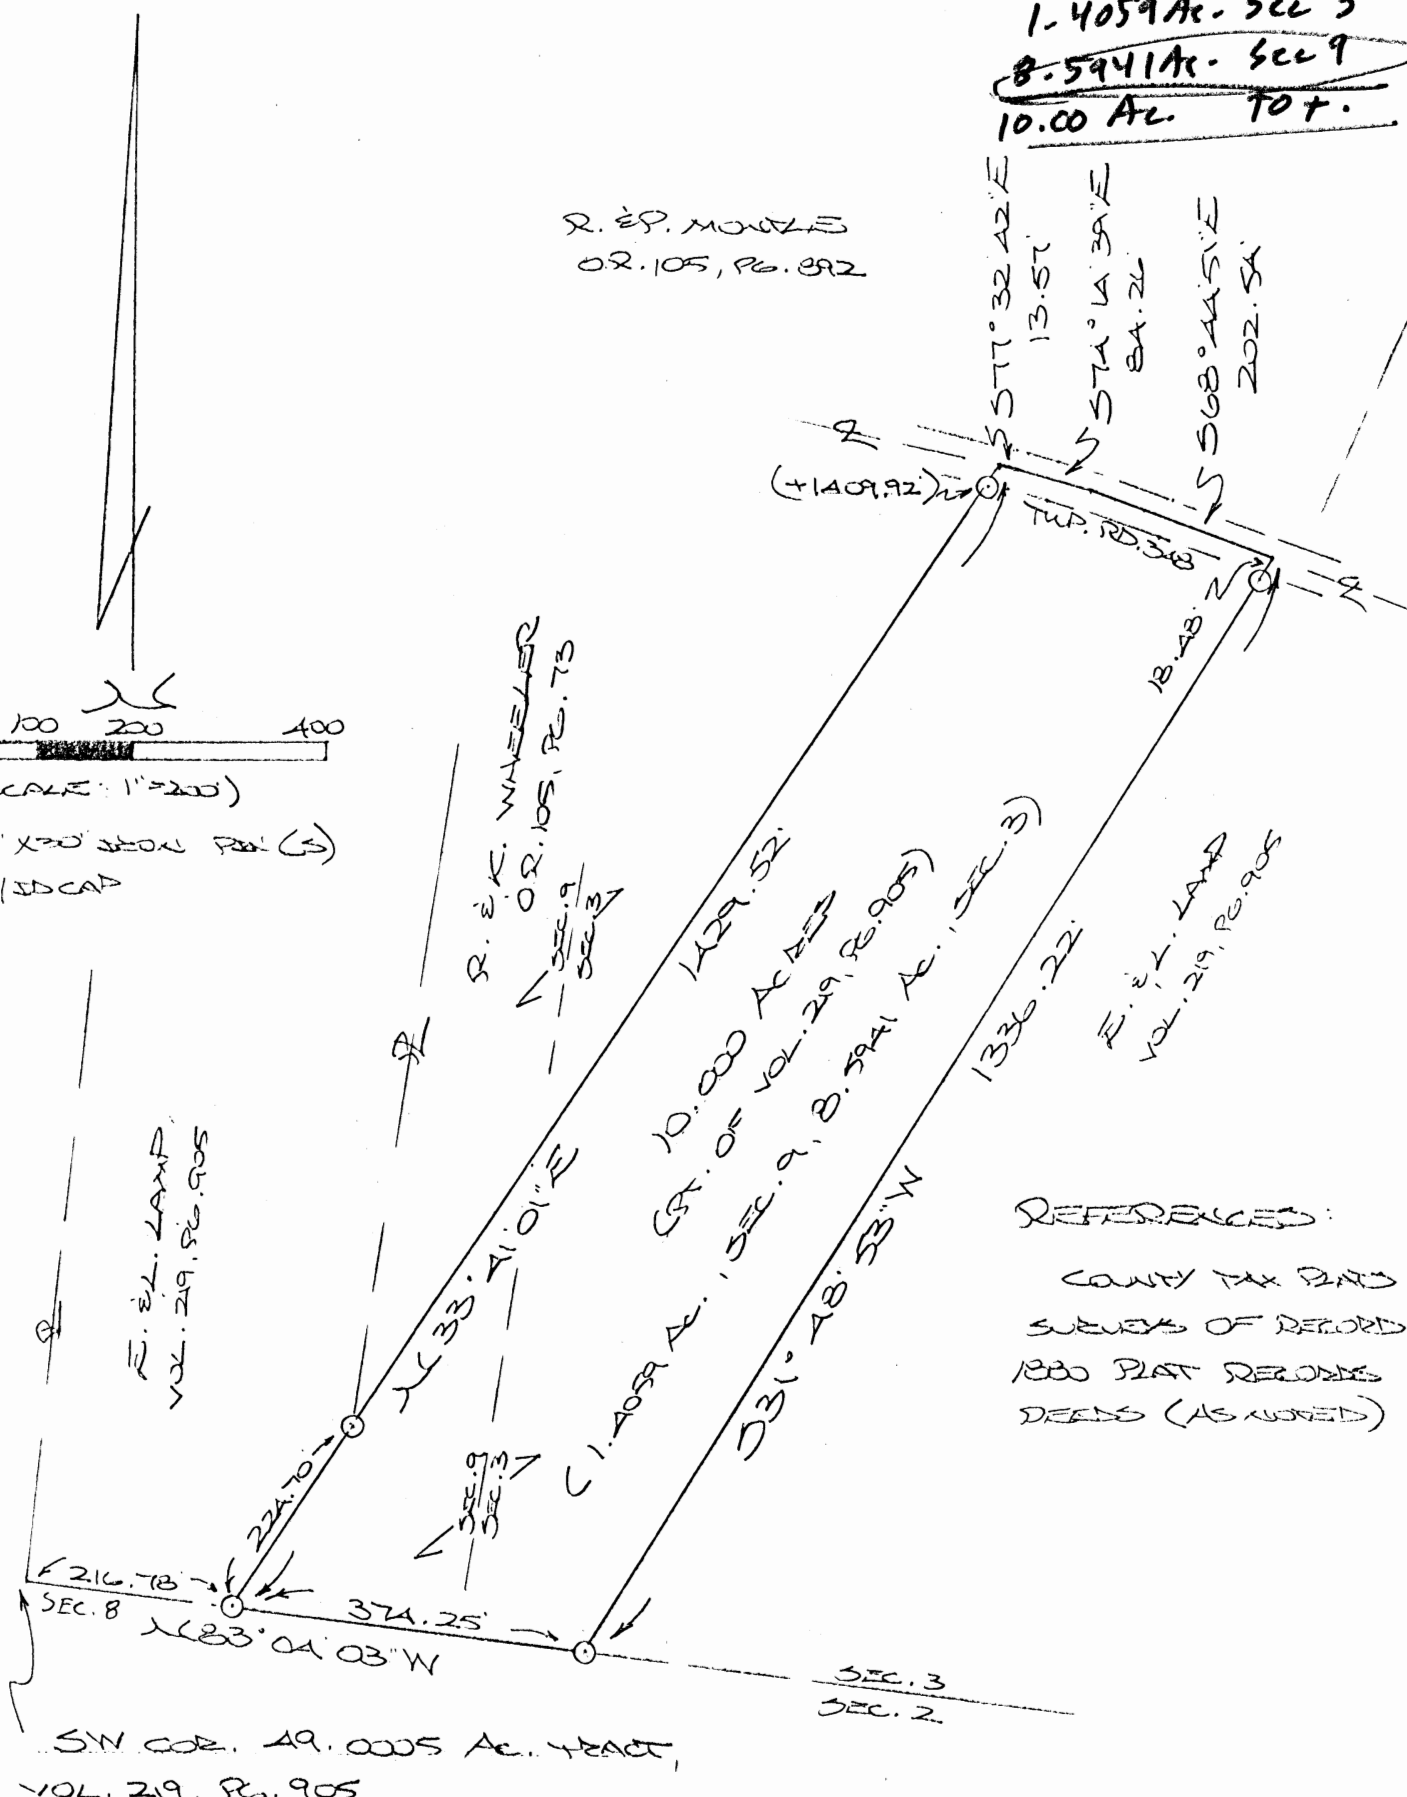 1.4059 Ac. Sec 3
8.5941 Ac. Sec 9
10.00 Ac. TOT.
S77°32'42"E
13.57'
S74°14'39"E
84.26'
S68°44'51"E
202.54'
R. & P. MONTLE
O.R. 105, PG. 892
(+1409.92')
TWP. RD. 348
18.48'
N
100 200 400
SCALE: 1"=200')
X30" IRON PIN(S)
/IDCAP
R. & K. WHEELER
O.R. 105, PG. 73
SEC. 9
SEC. 3
1429.52'
10.000 ACRES
(PT. OF VOL. 219, PG. 905)
(1.4059 Ac., SEC. 9, 8.5941 Ac., SEC. 3)
1336.22'
E. & L. LAMP
VOL. 219, PG. 905
E. & L. LAMP
VOL. 219, PG. 905
N33°41'01"E
S31°48'53"W
REFERENCES:
COUNTY TAX PLATS
SURVEYS OF RECORD
1880 PLAT RECORDS
DEEDS (AS NOTED)
224.70'
SEC. 9
SEC. 3
216.78'
SEC. 8
374.25'
N83°04'03"W
SEC. 3
SEC. 2
SW COR. 49.0005 Ac. TRACT,
VOL. 219, PG. 905